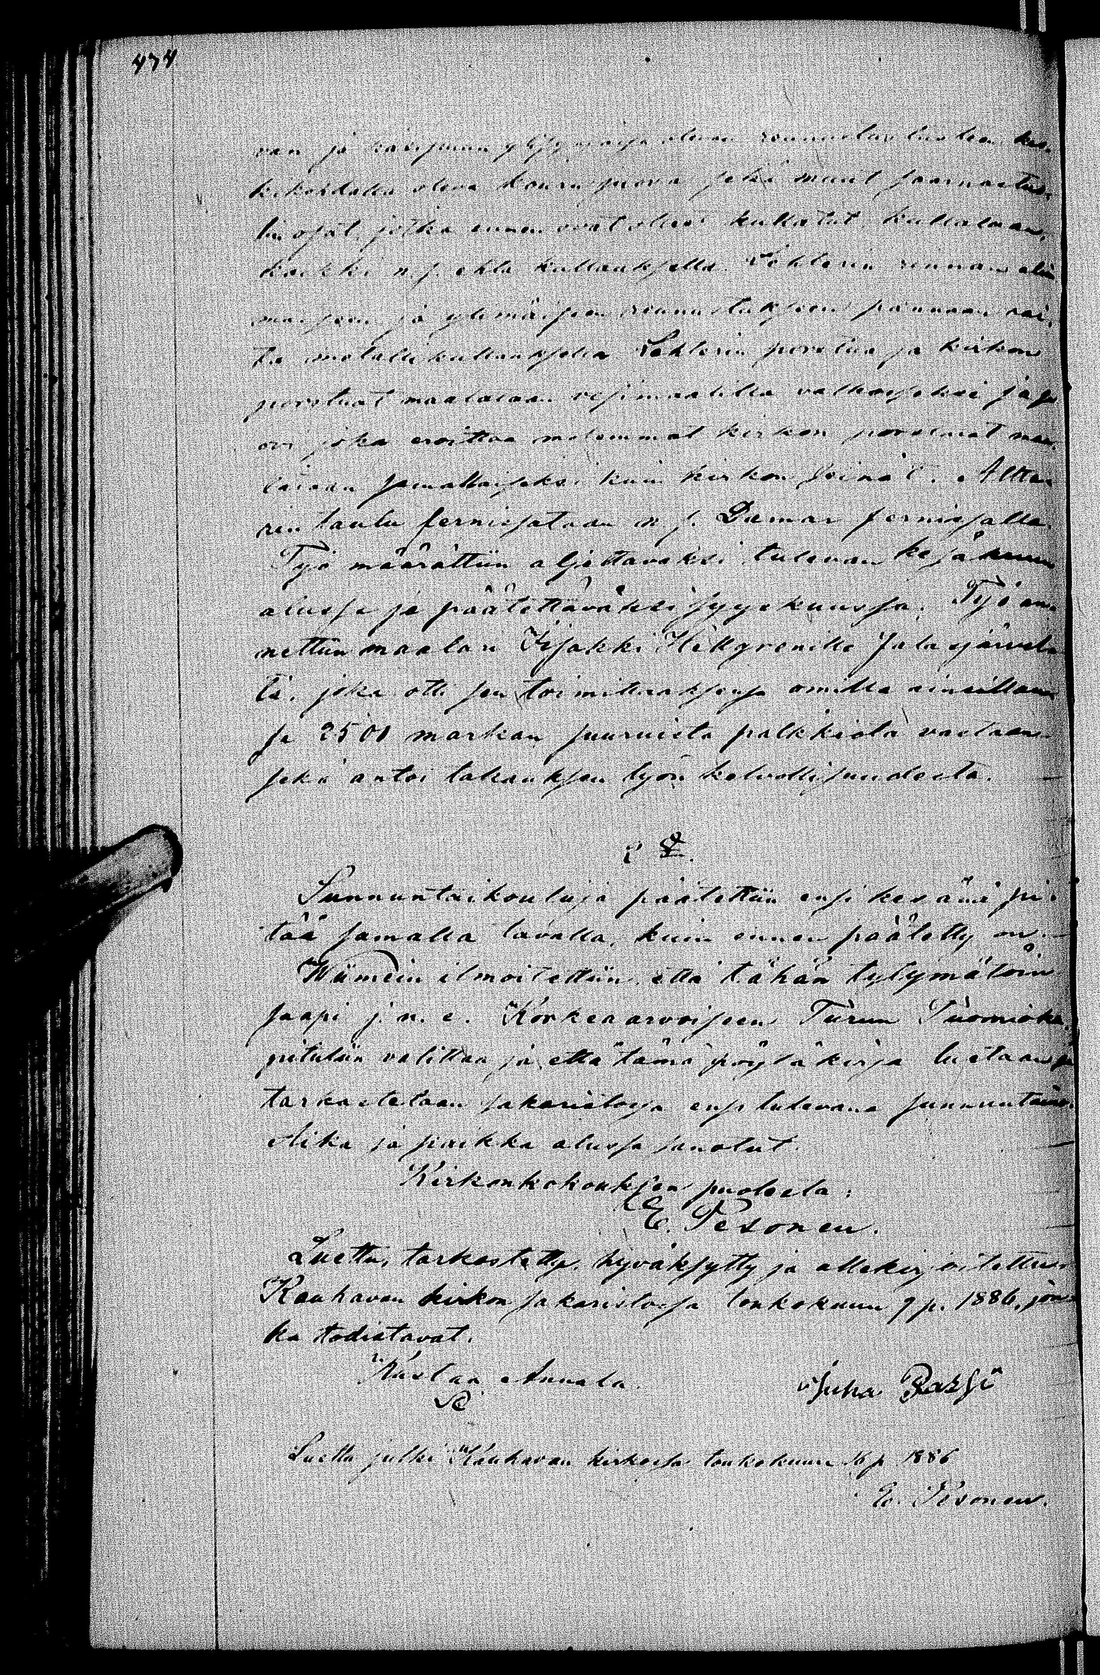 474
van ja ... olevan rinnustus...
kikohdalla oleva kouru ... sekä muut saarnastuo-
lin osat, jotka ennen ovat olleet kullatut, kullataan,
kaikki n. s. ehta kultauksella. Lehterin rinnan ali-
maiseen ja ylimäiseen rinnustukseen pannaan rai-
ta metallikultauksella. Lehterin porstua ja kirkon
porstuat maalataan vesimaalilla valkoiseksi ja se
ovi joka eroittaa molemmat kirkon porstuat maa-
lataan samallaiseksi kuin kirkon seinät. Altta-
rin taulu fernissataan n. s. Damar fernissalla.
Työ määrättiin aljettavaksi tulevan kesäkuun
alussa ja päätettäväksi syyskuussa. Työ an-
nettiin maalari Iisakki Hellgrenille Jalasjärvel-
tä, joka otti sen toimittaaksensa omilla aineillaan-
sa 2501 markan suuruista palkkiota vastaan
sekä antoi takauksen työn kelvollisuudesta.
2 §.
Sunnuntaikouluja päätettiin ensi kesänä pi-
tää samalla tavalla, kuin ennen päätetty on.
Wiimein ilmoitettiin, että tähän tytymätöin
saapi j. n. e. Korkeaarvoiseen Turun Tuomioka-
pituliin valittaa ja että tämä pöytäkirja luetaan ja
tarkastetaan sakaristossa ensi tulevana sunnuntaina.
Aika ja paikka alussa sanotut.
Kirkonkokouksen puolesta:
E. Pesonen.
Luettu, tarkastettu, hyväksytty ja allekirjoitettu
Kauhavan kirkon sakaristossa toukokuun 9 p. 1886, jon-
ka todistavat.
Kustaa Annala
Juha Passi
Luettu julki Kauhavan kirkossa toukokuun 16 p. 1886
E. Pesonen.